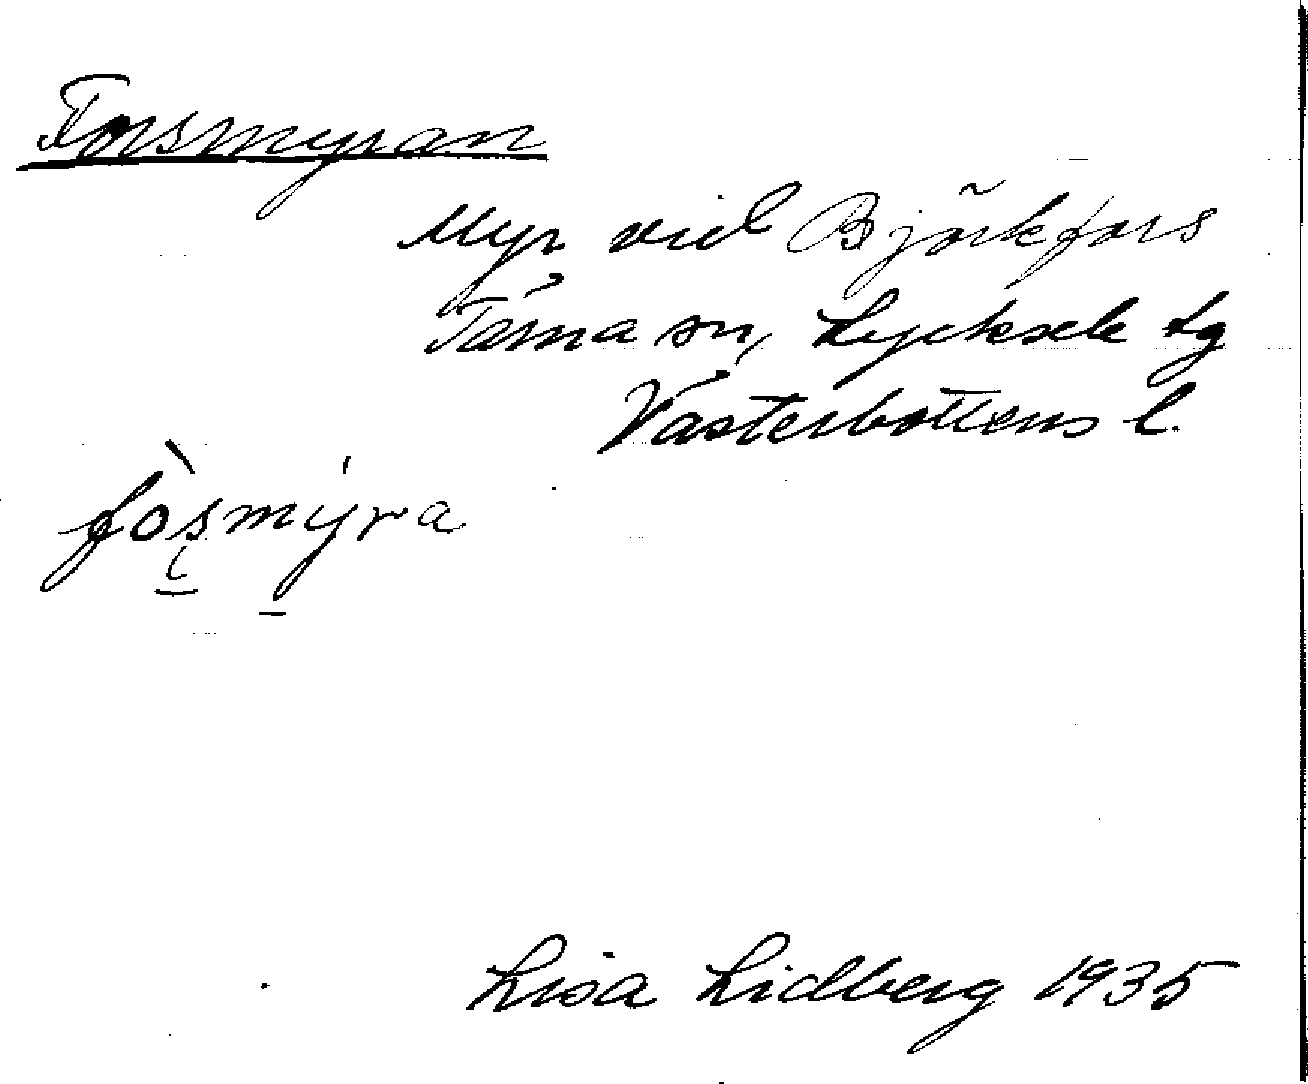 Forsmyran
Myr vid Björkfors
Tärna sn, Lycksele tg
Västerbottens l.
fòs̨mýra
Lisa Lidberg 1935